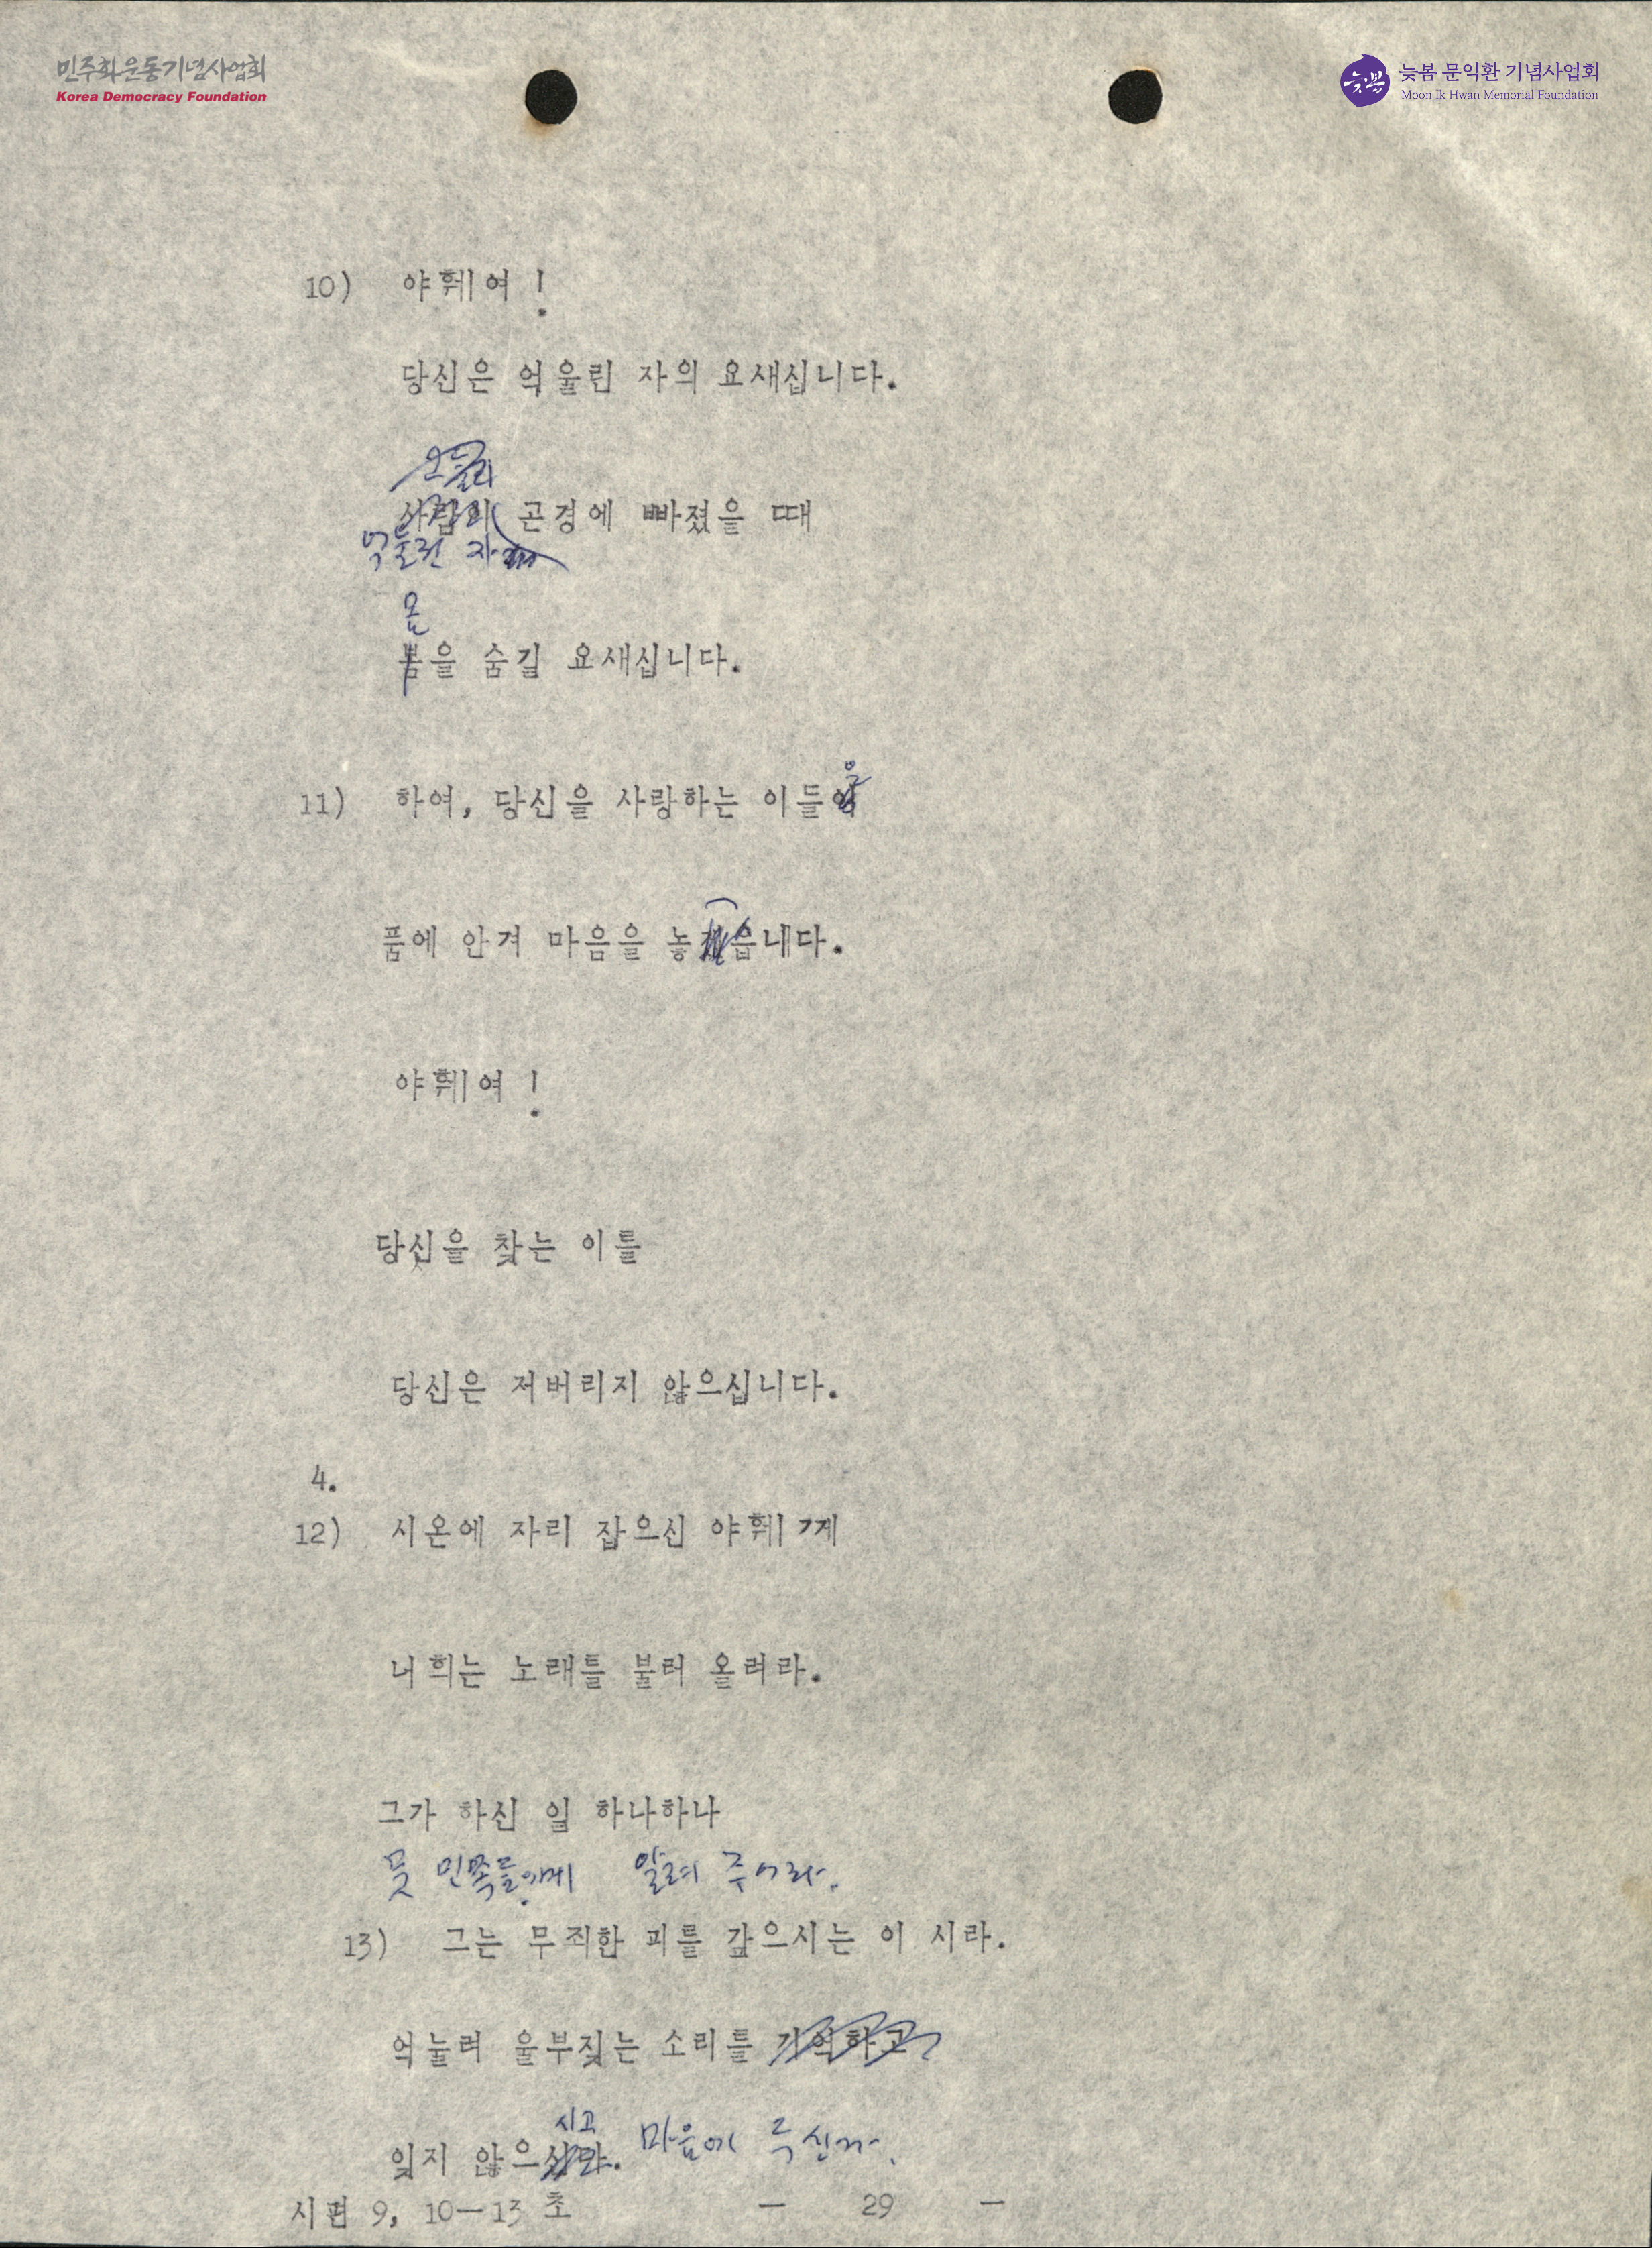 민주화운동기념사업회
Korea Democracy Foundation
늦봄
늦봄 문익환 기념사업회
Moon Ik Hwan Memorial Foundation
10) 야훼여 !
당신은 억울린 자의 요새십니다.
곤경에 빠졌을 때
억눌린 자
몸
을 숨길 요새십니다.
11) 하여, 당신을 사랑하는 이들
은
품에 안겨 마음을 놓 읍내다.
야훼여 !
당신을 찾는 이를
당신은 저버리지 않으십니다.
4.
12) 시온에 자리 잡으신 야훼께
너희는 노래를 불러 올려라.
그가 하신 일 하나하나
뭇 민족들에게 알려 주어라.
13) 그는 무죄한 피를 갚으시는 이 시라.
억눌려 울부짖는 소리를 기억하고
시고
잊지 않으 . 마음에 두신다.
시편 9, 10-13 초 - 29 -